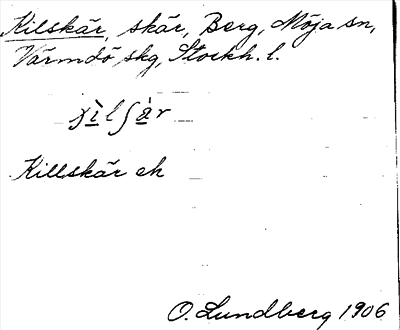 Kilskär, skär, Berg, Möja sn,
Värmdö skg, Stockh. l.
Killskär ek
O. Lundberg 1906